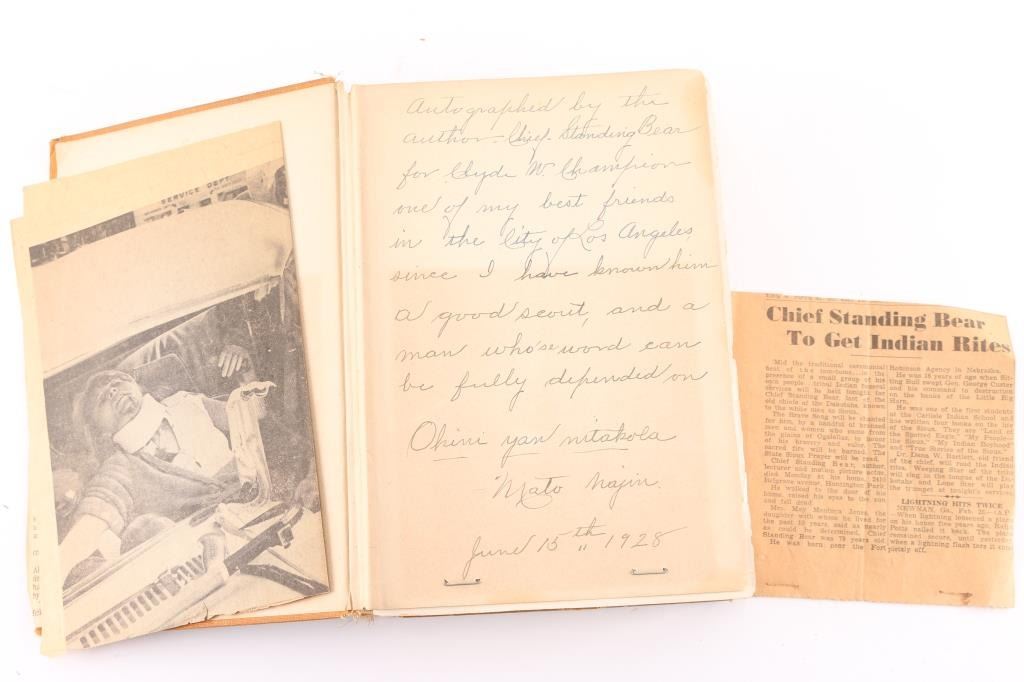 SERVICE DEPT.
Autographed by the
author - Chief - Standing Bear
for Clyde W. Champion
one of my best friends
in the City of Los Angeles,
since I have known him
a good scout, and a
man who'se word can
be fully depended on
Ohini yan nitakola
Mato Najin.
June 15th 1928
Chief Standing Bear
To Get Indian Rites
'Mid the traditional ceremonial
beat of the tom-tom and in the
presence of a small group of his
own people tribal Indian funeral
services will be held tonight for
Chief Standing Bear, last of the
old chiefs of the Dakotahs, known
to the white men as Sioux.
The Brave Song will be chanted
for him, by a handful of braided
men and women who came from
the plains of Ogalallas, to honor
of his bravery and valor. The
sacred fire will be burned. The
State Sioux Prayer will be read.
Chief Standing Bear, author,
lecturer and motion picture actor,
died Monday at his home, 2410
Belgrave avenue, Huntington Park.
He walked to the door of his
home, raised his eyes to the sun
and fell dead.
Mrs. May Montoya Jones, the
daughter with whom he lived for
the past 10 years, said as nearly
as could be determined, Chief
Standing Bear was 79 years old.
He was born near the Fort
Robinson Agency in Nebraska.
He was 16 years of age when Sit-
ting Bull swept Gen. George Custer
and his command to destruction
on the banks of the Little Big
Horn.
He was one of the first students
at the Carlisle Indian School and
has written four books on the life
of the Sioux. They are "Land of
the Spotted Eagle," "My People—
the Sioux," "My Indian Boyhood"
and "True Stories of the Sioux."
Dr. Dana W. Bartlett, old friend
of the chief, will read the Indian
rites. Weeping Star of the tribe
will sing in the tongue of the Da-
kotahs and Lone Star will play
the trumpet at tonight's services.
LIGHTNING HITS TWICE
NEWNAN, Ga., Feb. 25.—(A.P.)
—When lightning loosened a plank
on his house five years ago, Ralph
Potts nailed it back. The plank
remained secure, until yesterday
when a lightning flash tore it com-
pletely off.